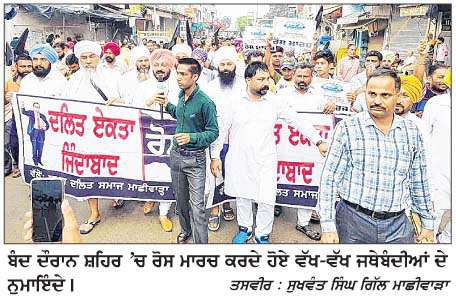 ਦਲਿਤ ਏਕਤਾ
ਜ਼ਿੰਦਾਬਾਦ
ਰੋਸ
ਦਲਿਤ ਸਮਾਜ ਮਾਛੀਵਾੜਾ
ਬੰਦ ਦੌਰਾਨ ਸ਼ਹਿਰ ’ਚ ਰੋਸ ਮਾਰਚ ਕਰਦੇ ਹੋਏ ਵੱਖ-ਵੱਖ ਜਥੇਬੰਦੀਆਂ ਦੇ
ਨੁਮਾਇੰਦੇ। ਤਸਵੀਰ : ਸੁਖਵੰਤ ਸਿੰਘ ਗਿੱਲ ਮਾਛੀਵਾੜਾ